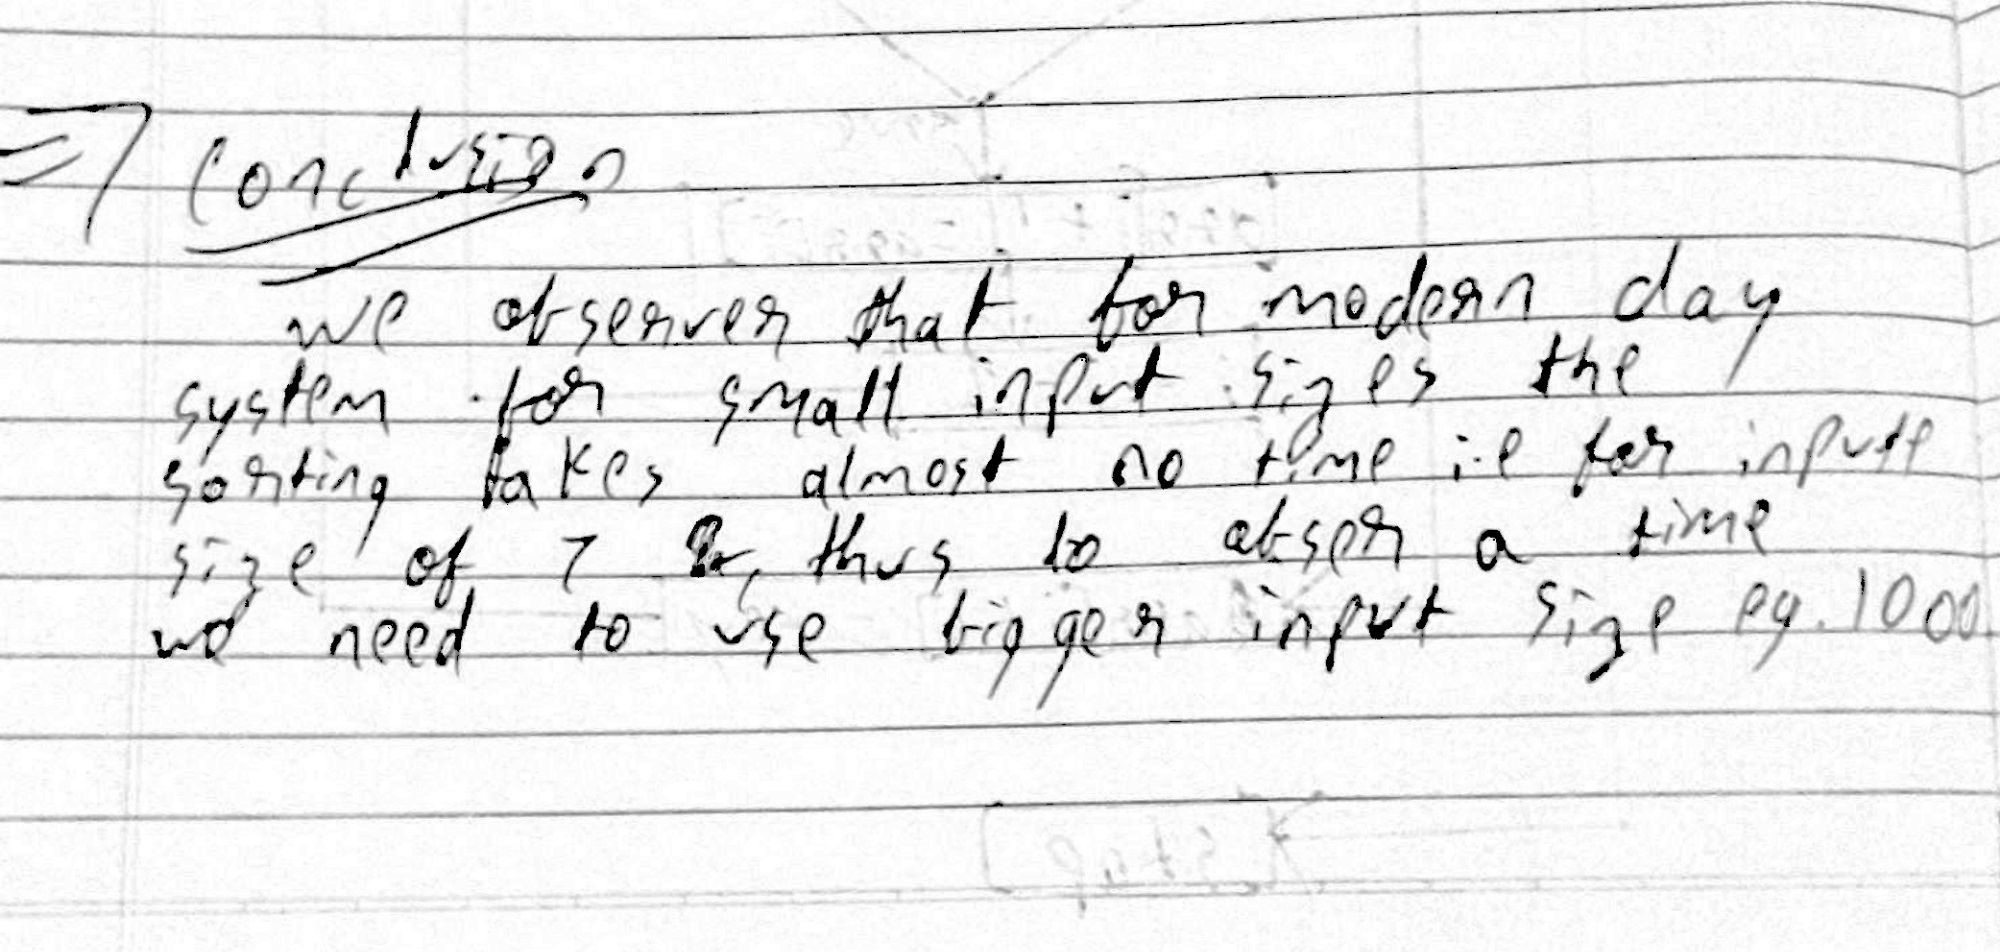 => Conclusion
we observer that for modern day
system for small input sizes the
sorting takes almost no time i.e for inpute
size of 7 , thus to obser a time
we need to use bigger input size eg. 1000